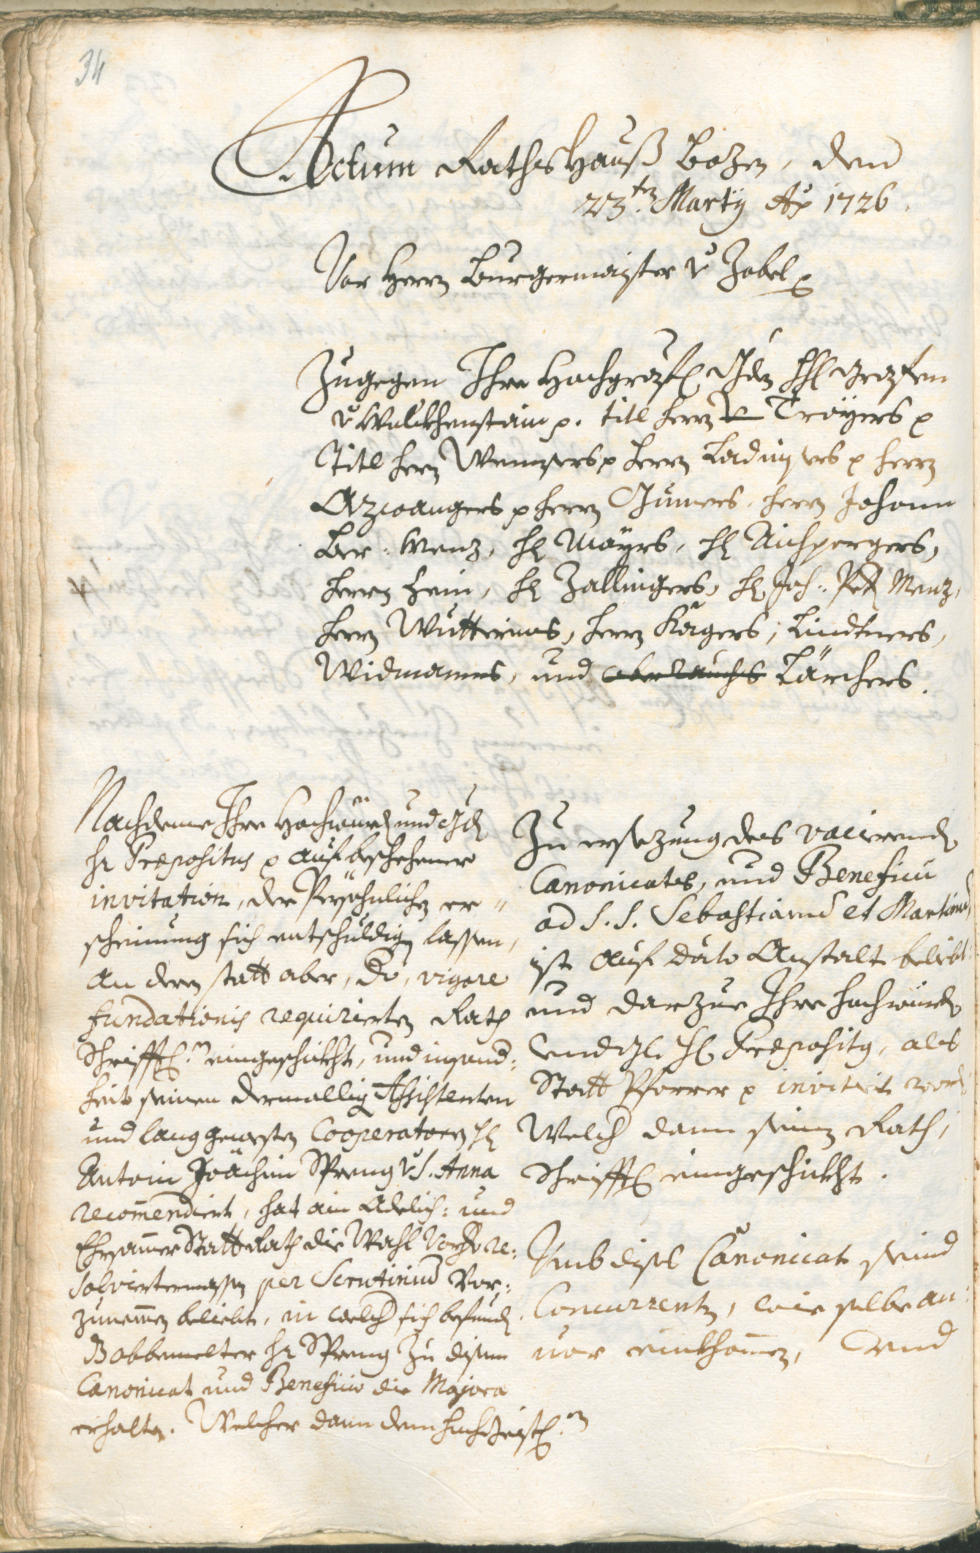 34
Actum Raths Hauß Bozen, den
23ten Martÿ Ao 1726.
Vor Herrn Burgermaister v Zobel p
Zugegen Ihro Hochgräfl Gdn HL Grafen
v Wolckhenstain p. titl herrn Troyers p
Titl herrn Wenzers p herrn Ladurners p herrn
Azwangers p herrn Gumers, herrn Johann
Ber: Menz, HL Mayrs, HL Aichpergers,
herrn Hein, HL Zallingers, HL Joh: Pet Menz,
herrn Wutterinns, herrn Kägers, Lindtners,
Widmanns, und Lärchers.
Nachdeme Ihro Hochwürd und Gd
Hr Præpositus p auf beschehenere
invitation, der Persöhnlichen er-
scheinung sich entschuldigen lassen,
an dern statt aber, do, vigore
fundationis requirierten Rath
Schrifftl.n eingeschickht, und insond:
heit seinen dermalligen Assistenten
und lang gewesten Cooperatorn HL
Antoni Joächim Spreng v S. Anna
recommendiert, hat ain Adelich: und
Ehrsamer Statt Rath die Wahl vorhero re:
solviertermassen per Scrutinium vor:
zunemen beliebt, in welch sich befunden
Bobbemelter Hr Spreng zu disem
Canonicat und Beneficio die Majora
erhalten. Welcher dann dem
Zu ersezung des vacierenden
Canonicates, und Beneficii
ad S. S. Sebastianum et Martinum
ist auf dato Anstalt beliebt
und darzue Ihro Hochwürden
und Gl. HL Præpositus, als
Statt Pfarrer p invitiert worden
Welch dann seinen Rath,
Schrifftl eingeschickht.
Umb dises Canonicat seind
Concurrenten, wie selbe an:
vor einkhomen, und